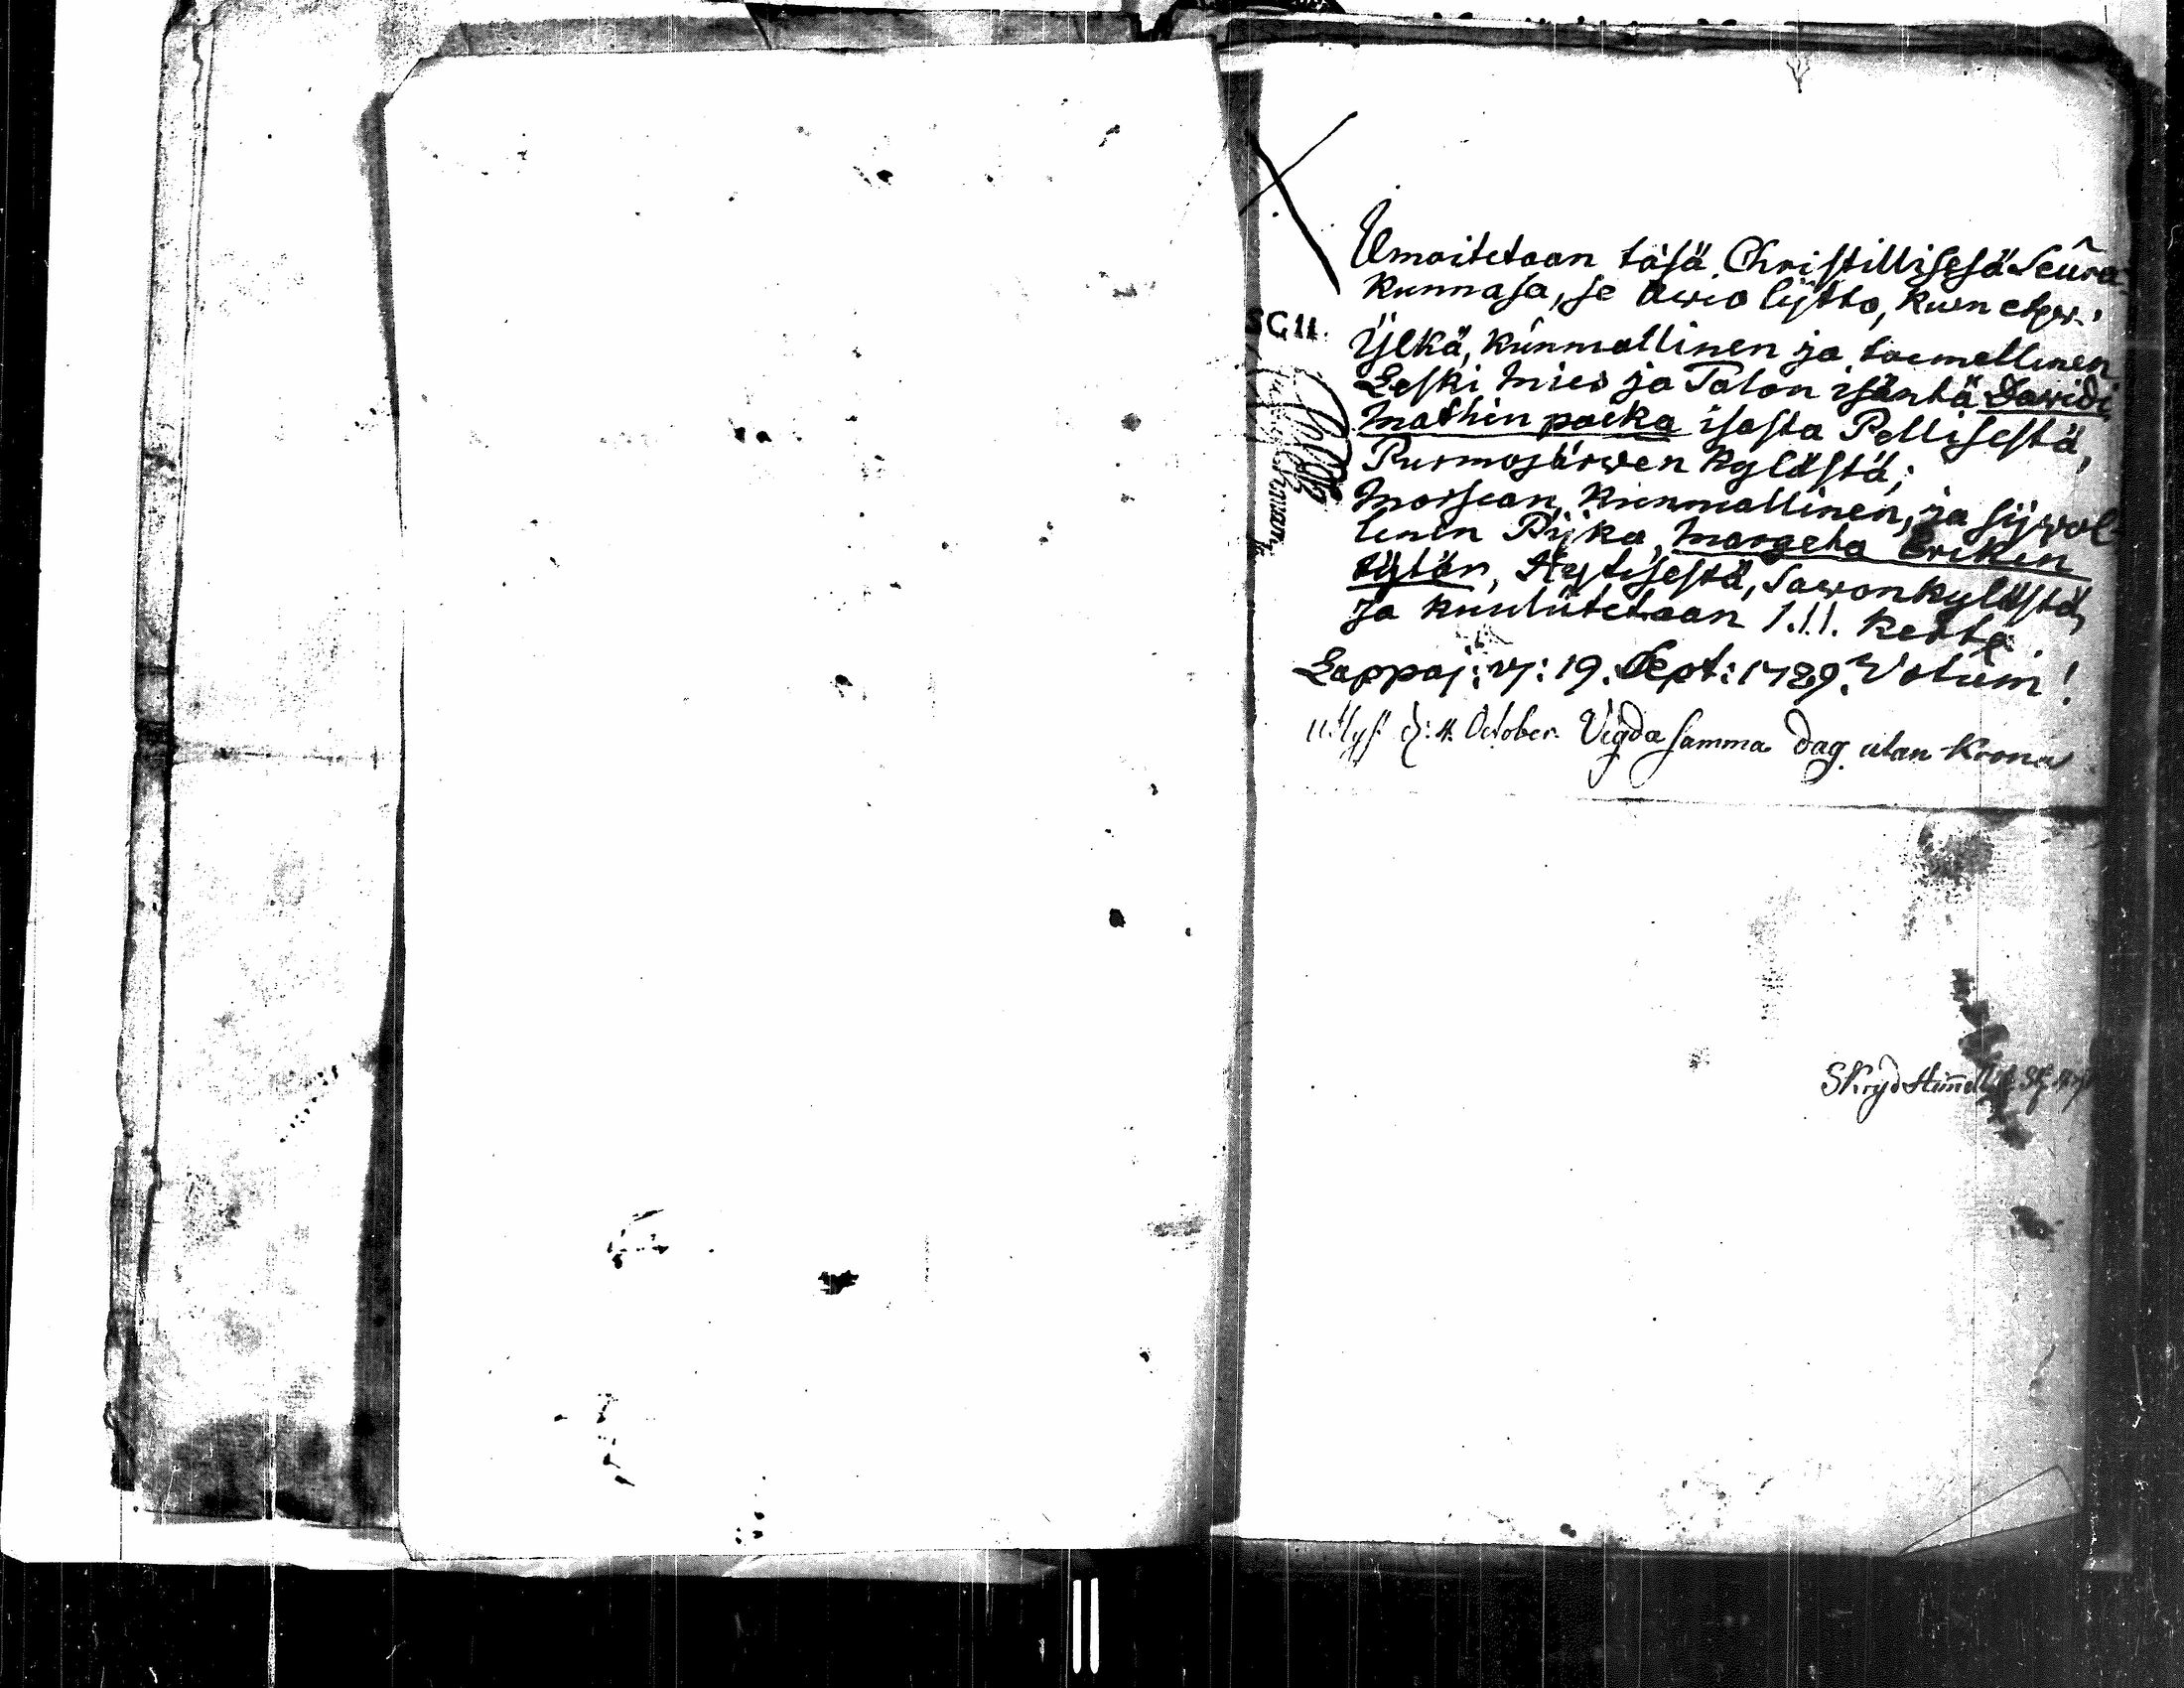 Ilmoitetaan täsä Christillisesä Seura-
kunnasa, se Awio lijtto, kuin etzei:
SG11.
Ylkä, kunniallinen ja toimellinen
Leski Mies ja Talon isäntä Dawidi
Mathin poika isosta Pellisestä,
Purmojärwen kylästä;
Morsian, kunniallinen, ja sijwol-
linen Pijka, Margeta Erikin
tytär, Hytisestä, Sawonkylästä,
ja kuulutetaan 1.!.!. kerta.
Lappaj: 19. Sept: 1789. Votum!
utlyst d: 4. October. Vigda samma dag utan Krona